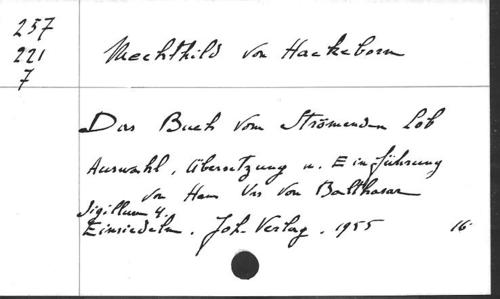 257
221
7
Mechthild von Hackeborn
Das Buch vom Strömenden Lob
Auswahl, Übersetzung u. Einführung
von Hans Urs von Balthasar
Sigillum 4.
Einsiedeln. Joh. Verlag. 1955 16.